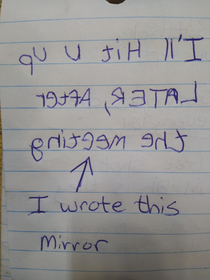 I'll Hit U up
LATER, After
the meeting
I wrote this
mirror